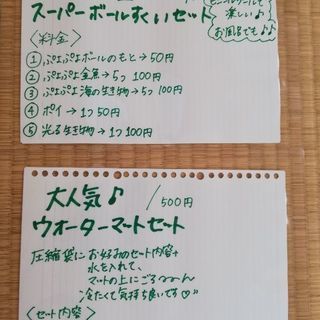 楽しい♪♪
お風呂でも♪♪
スーパーボールすくいセット
〈料金〉
① ぷよぷよボールのもと→50円
② ぷよぷよ金魚→5つ100円
③ ぷよぷよ海の生き物→5つ100円
④ ポイ→1つ50円
⑤ 光る生き物→1つ100円
大人気♪ /500円
ウオーターマットセット
圧縮袋にお好みのセット内容+
水を入れて、
マットの上にごろ~~ん
冷たくて気持ち良いです♡
〈セット内容〉